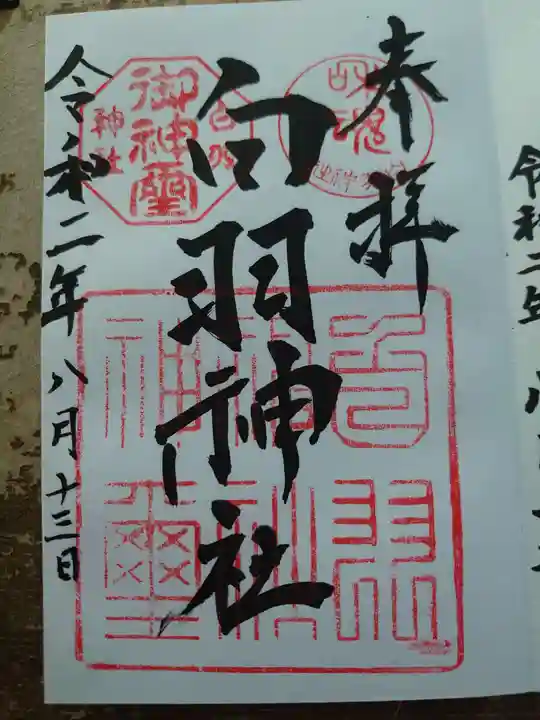 奉拝
白羽神社
令和二年八月十三日
白羽
御神璽
神社
白羽
神社
神璽
令和二年